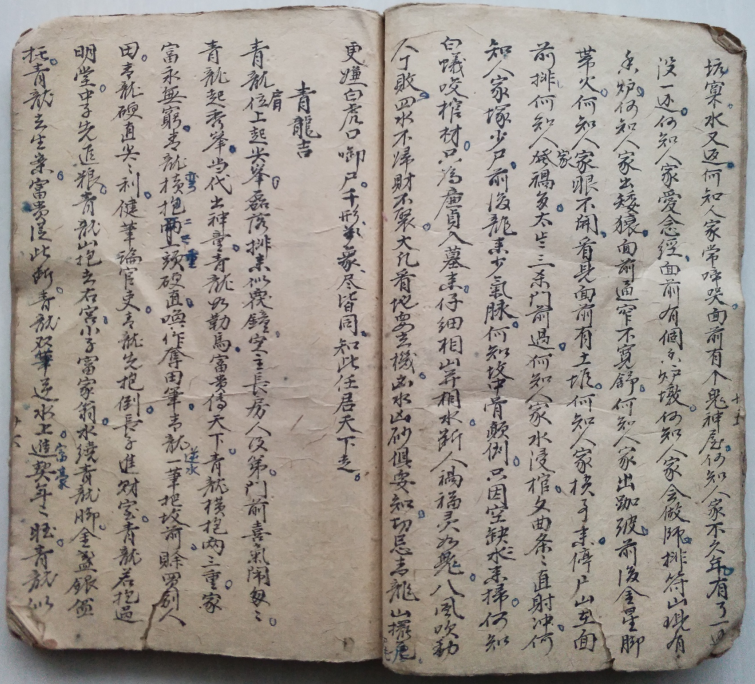 坑窠水又返何知人家常啼哭面前有个鬼神屋何知人家不久年有了一
没一还何知人家爱念经面前有個香炉墩何知人家会做师排符山此有
香炉何知人家出矮猿面前逼窄不寬舒何知人家出跏彼前後金星脚
带火何知人家眼不開看見面前有土堆何知人家接手来停尸山在面
前排何知人家禍多太岁三杀门前過何知人家水浸棺文曲条々直射冲何
知人家塚少尸前後龍来少氣脉何知坟中骨颠倒只因空缺水来掃何知
白蟻咬棺材只為廉貞入墓来仔細相山并相水断人禍福灵如飛八風吹動
人丁敗四水不歸財不聚大凡看地要玄機凶水凶砂俱要知切忌青龍山擺尾
更嫌白虎口啣尸千形萬象尽皆同知此任君天下走
青龍吉
青龍位上起尖峯磊落排来似覆鐘定主長房人及第門前喜氣鬧匆々
青龍起秀峯当代出神童青龍如勒馬富贵傳天下青龍横抱两三重家
富永無窮青龍横抱两頭硬直喚作奪田筆青龍一筆把坟前賒買别人
田青龍硬直尖々利健筆論官吏青龍先抱倒長子進財宝青龍若抱過
明堂中子先進粮青龍山抱去右宫小子富家翁水繞青龍脚金盞銀
托青龍去生業富贵從此断青龍双筆逆水上進契年々旺青龍似